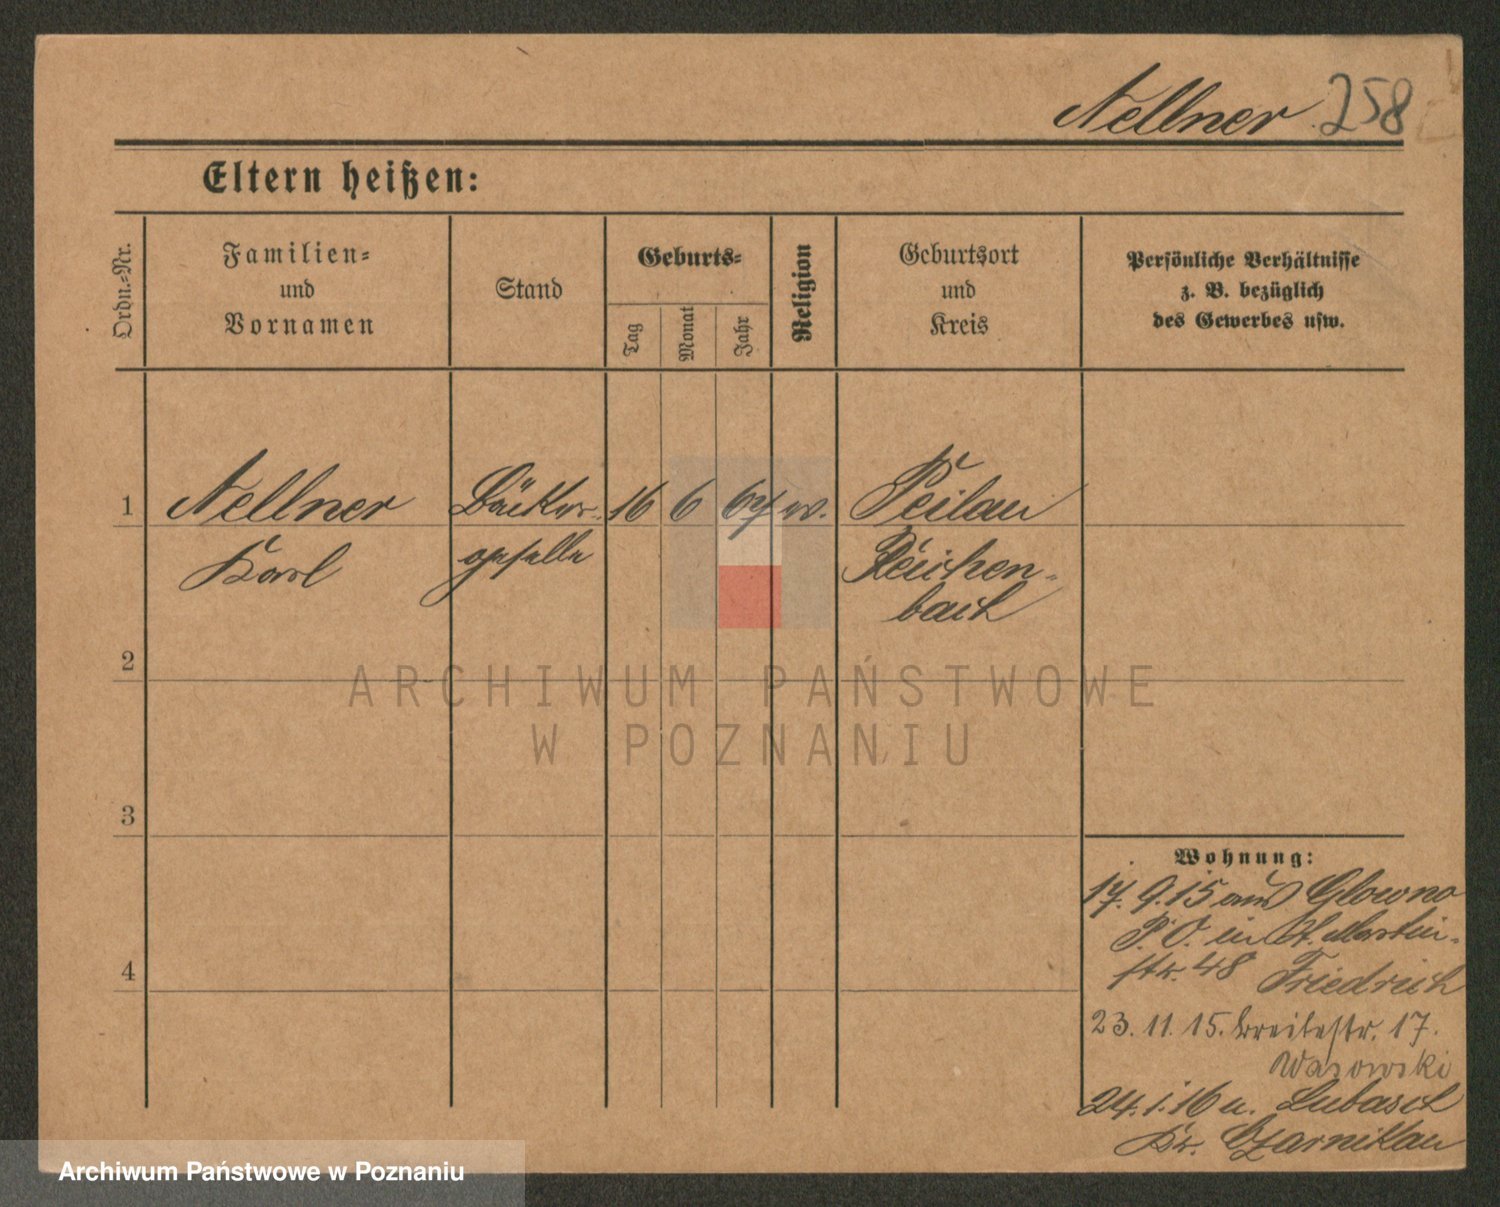 Nellner 258
Eltern heißen:
Ordn.-Nr.
Familien-
und
Vornamen
Stand
Geburts-
Tag
Monat
Jahr
Religion
Geburtsort
und
Kreis
Persönliche Verhältnisse
z. B. bezüglich
des Gewerbes usw.
1 Nellner Bäcker- 16 6 67 ev. Peilau
Karl geselle Reichen-
bach
2
ARCHIWUM PAŃSTWOWE
W POZNANIU
3
4
Wohnung:
17. 9. 15 aus Glowno
P. O. in St. Martin-
str. 48 Friedrich
23. 11. 15. Breitestr. 17.
Wasowski
24. 1. 16 n. Lubasch
Kr. Czarnikau
Archiwum Państwowe w Poznaniu